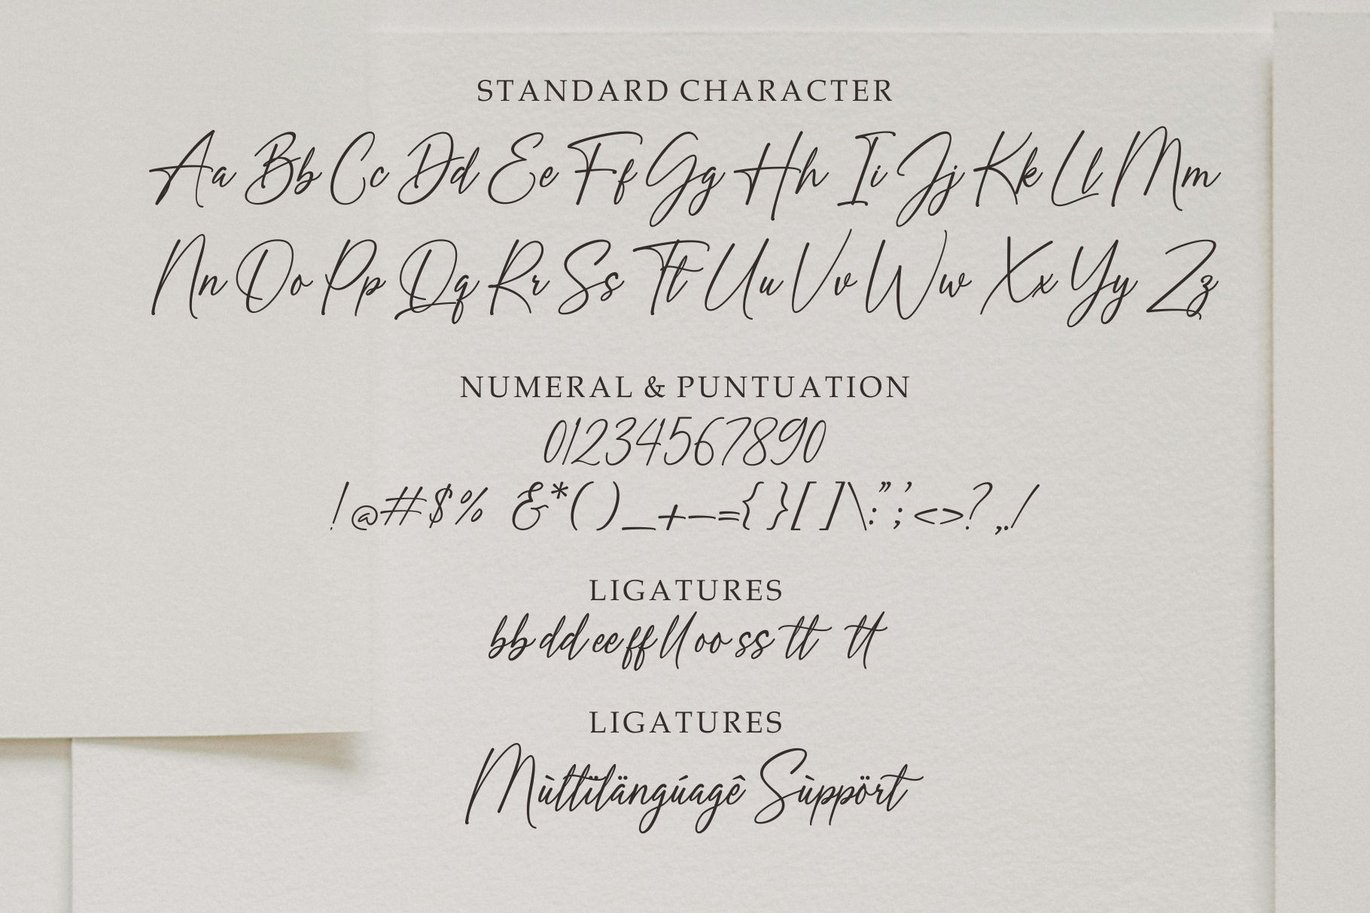 STANDARD CHARACTER
Aa Bb Cc Dd Ee Ff Gg Hh Ii Jj Kk Ll Mm
Nn Oo Pp Qq Rr Ss Tt Uu Vv Ww Xx Yy Zz
NUMERAL & PUNTUATION
01234567890
!@#$% &*( )_+–={ }[ ]\:";'<>?,./
LIGATURES
bb dd ee ff ll oo ss tt tt
LIGATURES
Mùltïlängúagê Sùppört